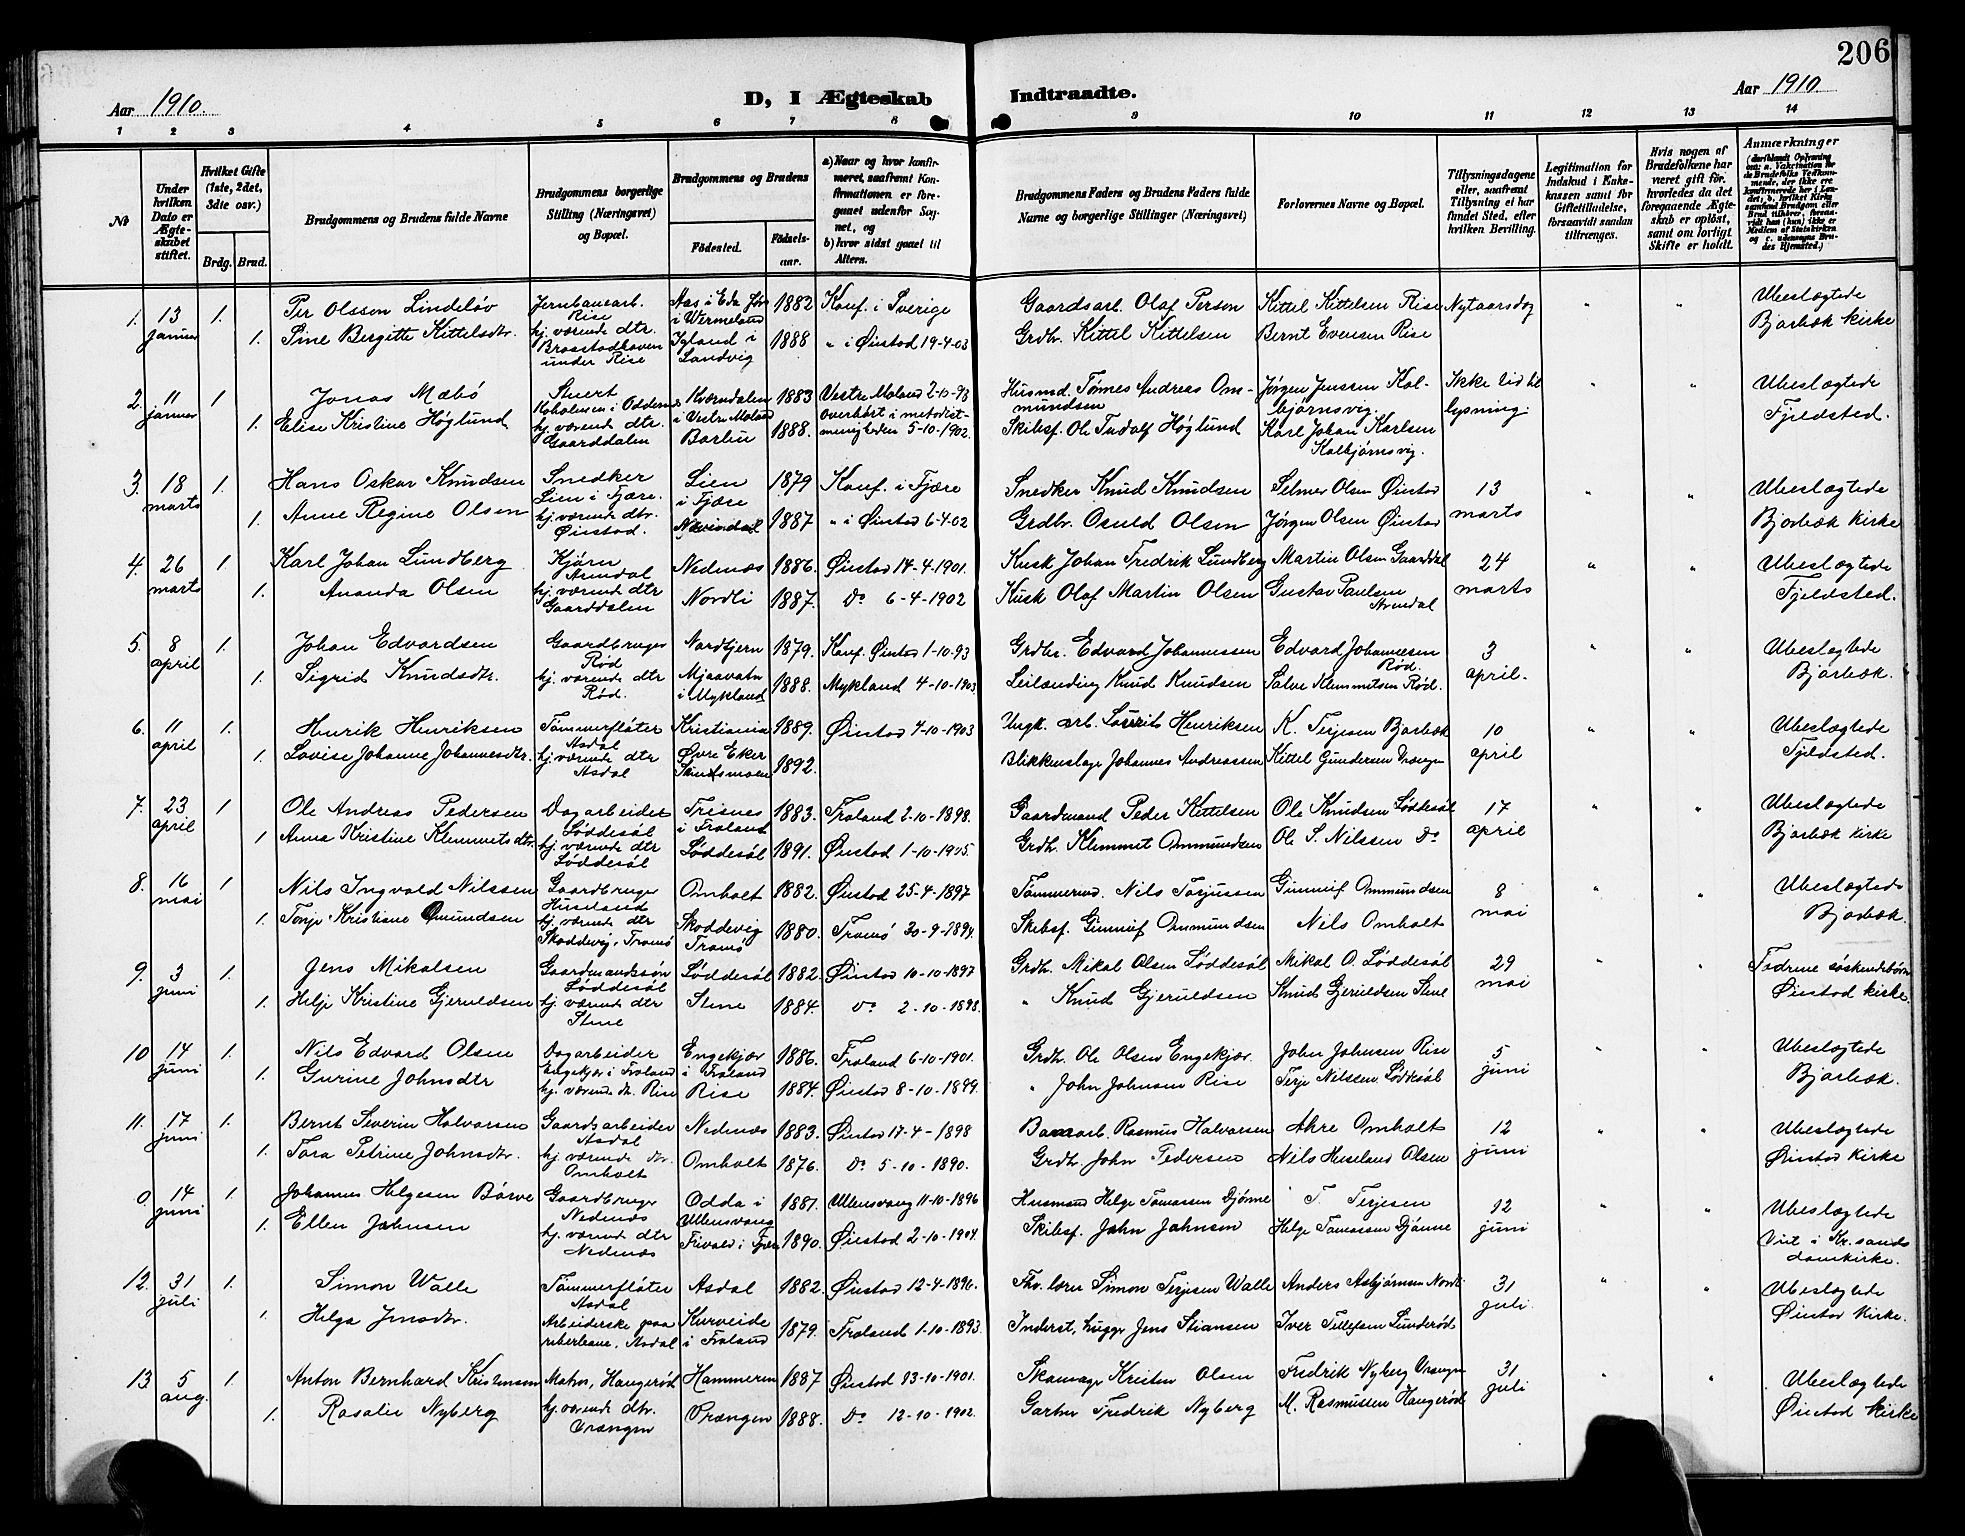 206
Aar 1910.
D, I Ægteskab Indtraadte.
Aar 1910.
1 2 3 4 5 6 7 8 9 10 11 12 13 14
No
Under hvilken Dato er Ægteskabet stiftet.
Hvilket Gifte (1ste, 2det, 3dte osv.)
Brdg. Brud.
Brudgommens og Brudens fulde Navne
Brudgommens borgerlige Stilling (Næringsvei) og Bopæl.
Brudgommens og Brudens
Födested.
Födselsaar.
a) Naar og hvor konfirmeret, saafremt Konfirmationen er foregaaet udenfor Sognet, og
b) hvor sidst gaaet til Alters.
Brudgommens Faders og Brudens Faders fulde Navne og borgerlige Stillinger (Næringsvei)
Forlovernes Navne og Bopæl.
Tillysningsdagene eller, saafremt Tillysning ei har fundet Sted, efter hvilken Bevilling.
Legitimation for Indskud i Enkekassen samt for Giftetilladelse, forsaavidt saadan tiltrænges.
Hvis nogen af Brudefolkene har været gift för, hvorledes da det foregaaende Ægteskab er oplöst, samt om lovligt Skifte er holdt.
Anmærkninger
1. 13 januar 1. Per Olsson Lindelöv Jernbanearb. Rise Aas i Eda i Wermeland 1882 Konf. i Sverige Gaardsarb. Olaf Person Kittel Kittelsen Rise Nytaarsdag " " Ubeslægtede
1. Sine Bergitte Kittelsdtr. hj. værende dtr. under Rise Igland i Landvig 1888 " i Øiestad 19-4-03 Grdbr. Kittel Kittelsen Bernt Evensen Rise Bjorbæk kirke
2. 11 januar 1 Jonas Mæbö Kværndalen i Vestre Moland 1883 Vestre Moland 2-10-98 Husmd. Tönnes Andreas Ommundsen Jørgen Jenssen Kolbjørnsvig. Ikke tid til lysning. " " Ubeslægtede
1. Elise Kristine Höglund hj. værende dtr. Gaarddalen 1888. overhört i metodistmenigheden 5-10-1902. Skibsf. Ole Höglund Karl Johan Karlsen Kolbjørnsvig. Fjeldsted.
3. 18 marts 1. Hans Oskar Knudsen Snedker Lien i Fjære. Lien i Fjære 1879 Konf. i Fjære Snedker Knud Knudsen Selmer Olsen Øiestad 13 marts " " Ubeslægtede
1. Anne Regine Olsen hj. værende dtr. Øiestad. 1887 " i Øiestad 6-4-02 Grdbr. Osuld Olsen Jørgen Olsen Øiestad Bjorbæk kirke
4. 26 marts 1. Karl Johan Lundberg Arendal Nedenæs 1886. Øiestad 14-4-1901. Kusk Johan Fredrik Lundberg Martin Olsen Gaarddal 24 marts " " Ubeslægtede
1. Ananda Olsen hj. værende dtr Gaarddalen Nordli 1887. Do 6-4-1902 Kusk Olaf Martin Olsen Gustav Paulsen Arendal Fjeldsted.
5. 8 april 1. Johan Edvardsen Gaardbruger Röd Nordtjern 1879. Konf. Øiestad 1-10-93 Grdbr. Edvard Johannessen Edvard Johannessen Röd. 3 april. " " Ubeslægtede
1. Sigrid Knudsdtr. hj. værende dtr Röd. Mjaavatn i Mykland 1888. Mykland 4-10-1903. Leilænding Knud Knudsen Salve Klemmetsen Röd. Bjorbæk.
6. 11 april 1. Henrik Henriksen Tömmerflöter Asdal Kristiania 1889. Øiestad 4-10-1903 arb. Henriksen K. Terjesen Bjorbæk 10 april " " Ubeslægtede
1. Lovise Johanne Johannesdtr. hj. værende dtr Asdal Øvre Eker 1892. Blikkenslager Johannes Andreassen Kittel Gundersen Vrængen Fjeldsted.
7. 23 april 1 Ole Andreas Pedersen Dagarbeider Löddesöl i Froland 1883. Froland 2-10-1898. Gaardmand Peder Kittelsen Ole Knudsen Löddesöl 17 april " " Ubeslægtede
1 Anna Kristine Klemmetsdtr. hj. værende dtr Löddesöl Löddesöl 1891. Øiestad 1-10-1905. Grdb. Klemmet Ommundsen Ole S. Nilssen Do Bjorbæk kirke
8. 16 mai 1 Nils Ingvald Nilssen Gaardbruger Huseland Omholt 1882. Øiestad 25-4-1897 Tömmermd. Nils Torjussen Gunnuf Ommundsen 8 mai " " Ubeslægtede
1. Kristiane Omundsen hj. værende dtr Skoddevig, Tromö Skoddevig Tromö 1880. Tromö 30-9-1894. Skibsf. Gunnuf Ommundsen Nils Omholt Bjorbæk.
9. 3 juni 1. Jens Mikalsen Gaardmandssön Löddesöl Löddesöl 1882. Øiestad 10-10-1897 Grdb. Mikal Olsen Löddesöl Mikal O. Löddesöl 29 mai " " söskendebörn
1. Helje Kristine Gjeruldsen hj værende dtr Stene Stene 1884. Do 2-10-1898. " Knud Gjeruldsen Knud Gjeruldsen Stene Øiestad kirke.
10 14 juni 1. Nils Edvard Olsen Dagarbeider Engekjær i Froland Engekjær i Froland 1886. Froland 6-10-1901. Grdb. Ole Olsen Engekjær. John Johnsen Rise 5 juni " " Ubeslægtede
1. Gurine Johnsdtr hj. værende dtr. Rise Rise 1884. Øiestad 8-10-1899. " John Johnsen Rise Terje Nilssen Löddesöl Bjorbæk.
11. 17 juni 1. Bernt Severin Halvorsen Gaardsarbeider Asdal Nedenæs 1883. Øiestad 17-4-1898 Rasmus Halvorsen Akre Omholt 12 juni " " Ubeslægtede
1. Tora Petrine Johnsdtr. hj. værende dtr. Omholt Omholt 1876. Do 5-10-1890. Grdb. John Pedersen Nils Huseland Olsen Øiestad kirke
0. 14 juni 1. Johannes Helgesen Börve Gaardbruger Nedenæs Odda i Ullensvang 1881. Ullensvang 11-10-1896 Husmand Helge Tomassen Djönne T. Terjesen 12 juni " " Ubeslægtede
1. Ellen Johnsen hj. værende dtr Nedenæs 1890. Øiestad 2-10-1904. Skibsf. John Johnson Helge Tomassen Djönne Viet i Kr.sands domkirke.
12. 31 juli 1. Simon Walle Tömmerflöter Asdal Asdal 1882 Øiestad 12-4-1896. Simon Terjesen Walle Anders Asbjörnsen Nordli 31 juli. " " Ubeslægtede
1. Helga Jensdtr. Arbeiderske paa reberbane, Asdal Kurveide i Froland 1879. Froland 1-10-1893. Inderst, hugger Jens Stiansen Iver Tellefsen Lunderöd Øiestad Kirke.
13. 5 aug. 1. Anton Bernhard Kristensen Matros, Haugeröd Hammeren 1887 Øiestad 13-10-1901. Skomager Kristen Olsen Fredrik Nyberg Vrængen 31 juli " " Ubeslægtede
1. Rosalie Nyberg hj. værende dtr. Vrængen Vrængen 1888. Do 12-10-1902. Gartner Fredrik Nyberg M. Rasmussen Haugeröd Øiestad kirke